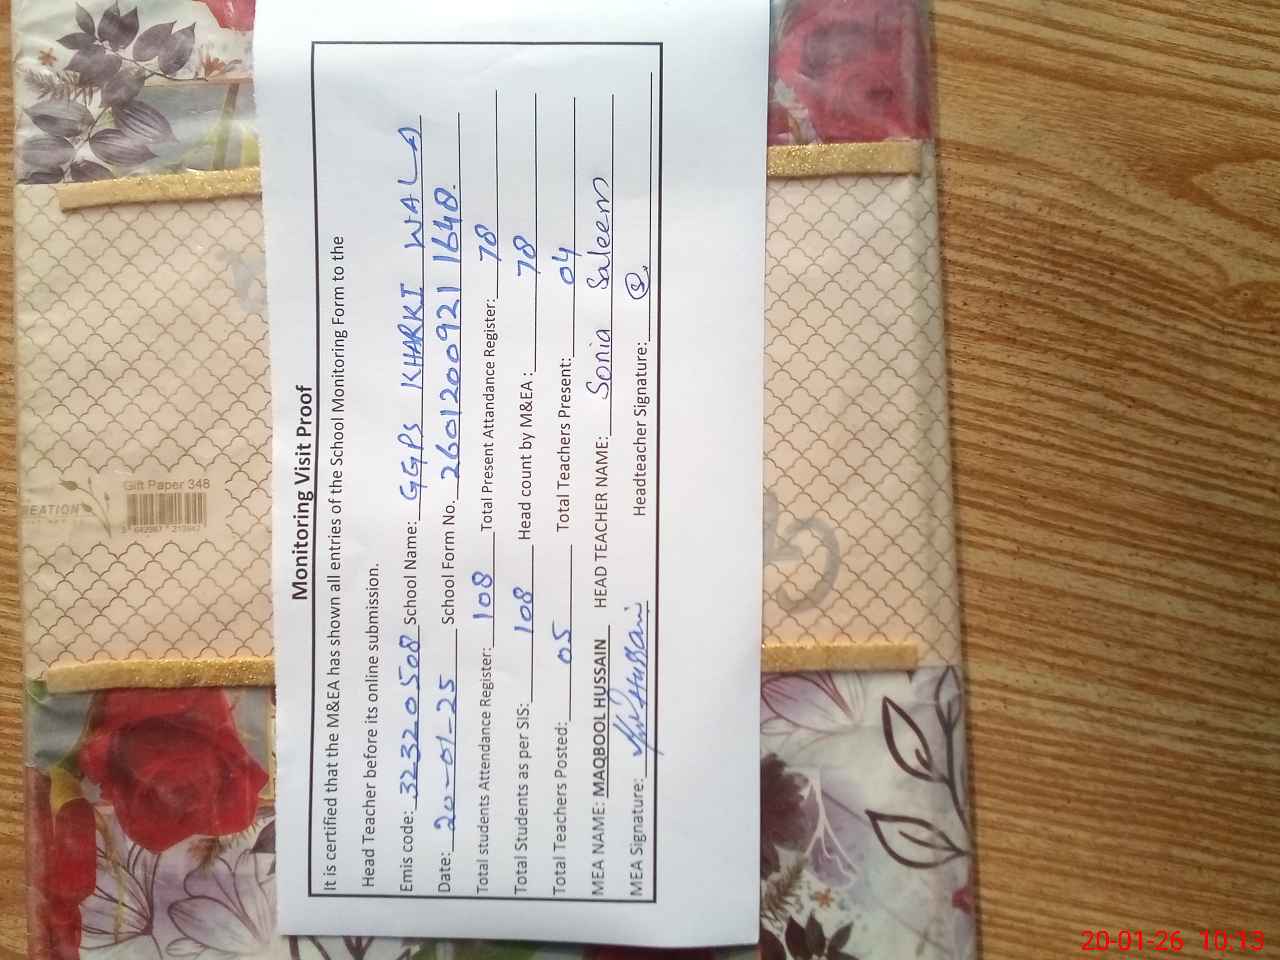 Monitoring Visit Proof
It is certified that the M&EA has shown all entries of the School Monitoring Form to the
Head Teacher before its online submission.
Emis code: 32320508 School Name: GGPS KHARKI WALA
Date: 20-01-25 School Form No. 2601200921 1648.
Total students Attendance Register: 108 Total Present Attandance Register: 78
Total Students as per SIS: 108 Head count by M&EA : 78
Total Teachers Posted: 05 Total Teachers Present: 04
MEA NAME: MAQBOOL HUSSAIN HEAD TEACHER NAME: Sonia Saleem
MEA Signature: Hussain Headteacher Signature:
REATION
Gift Paper 348
20-01-26 10:13